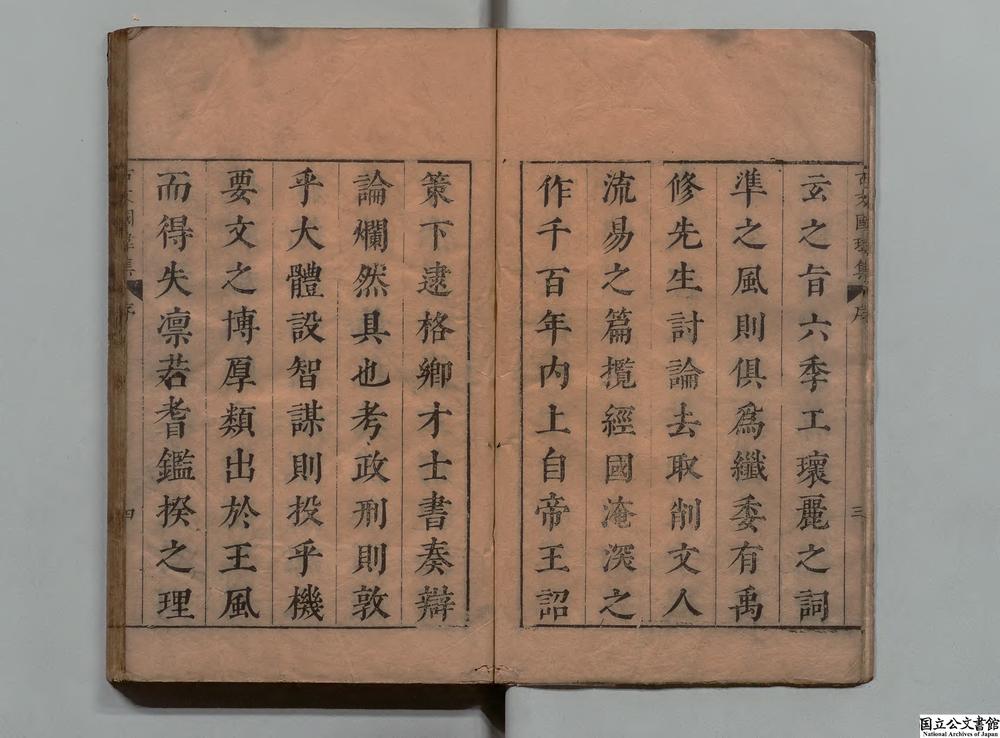 玄之旨六季工瓌麗之詞
準之風則俱爲纖委有禹
修先生討論去取削文人
流易之篇攬經國淹深之
作千百年內上自帝王詔
三
策下逮格鄉才士書奏辯
論爛然具也考政刑則敦
乎大體設智謀則投乎機
要文之博厚類出於王風
而得失凛若耆鑑揆之理
四
国立公文書館
National Archives of Japan